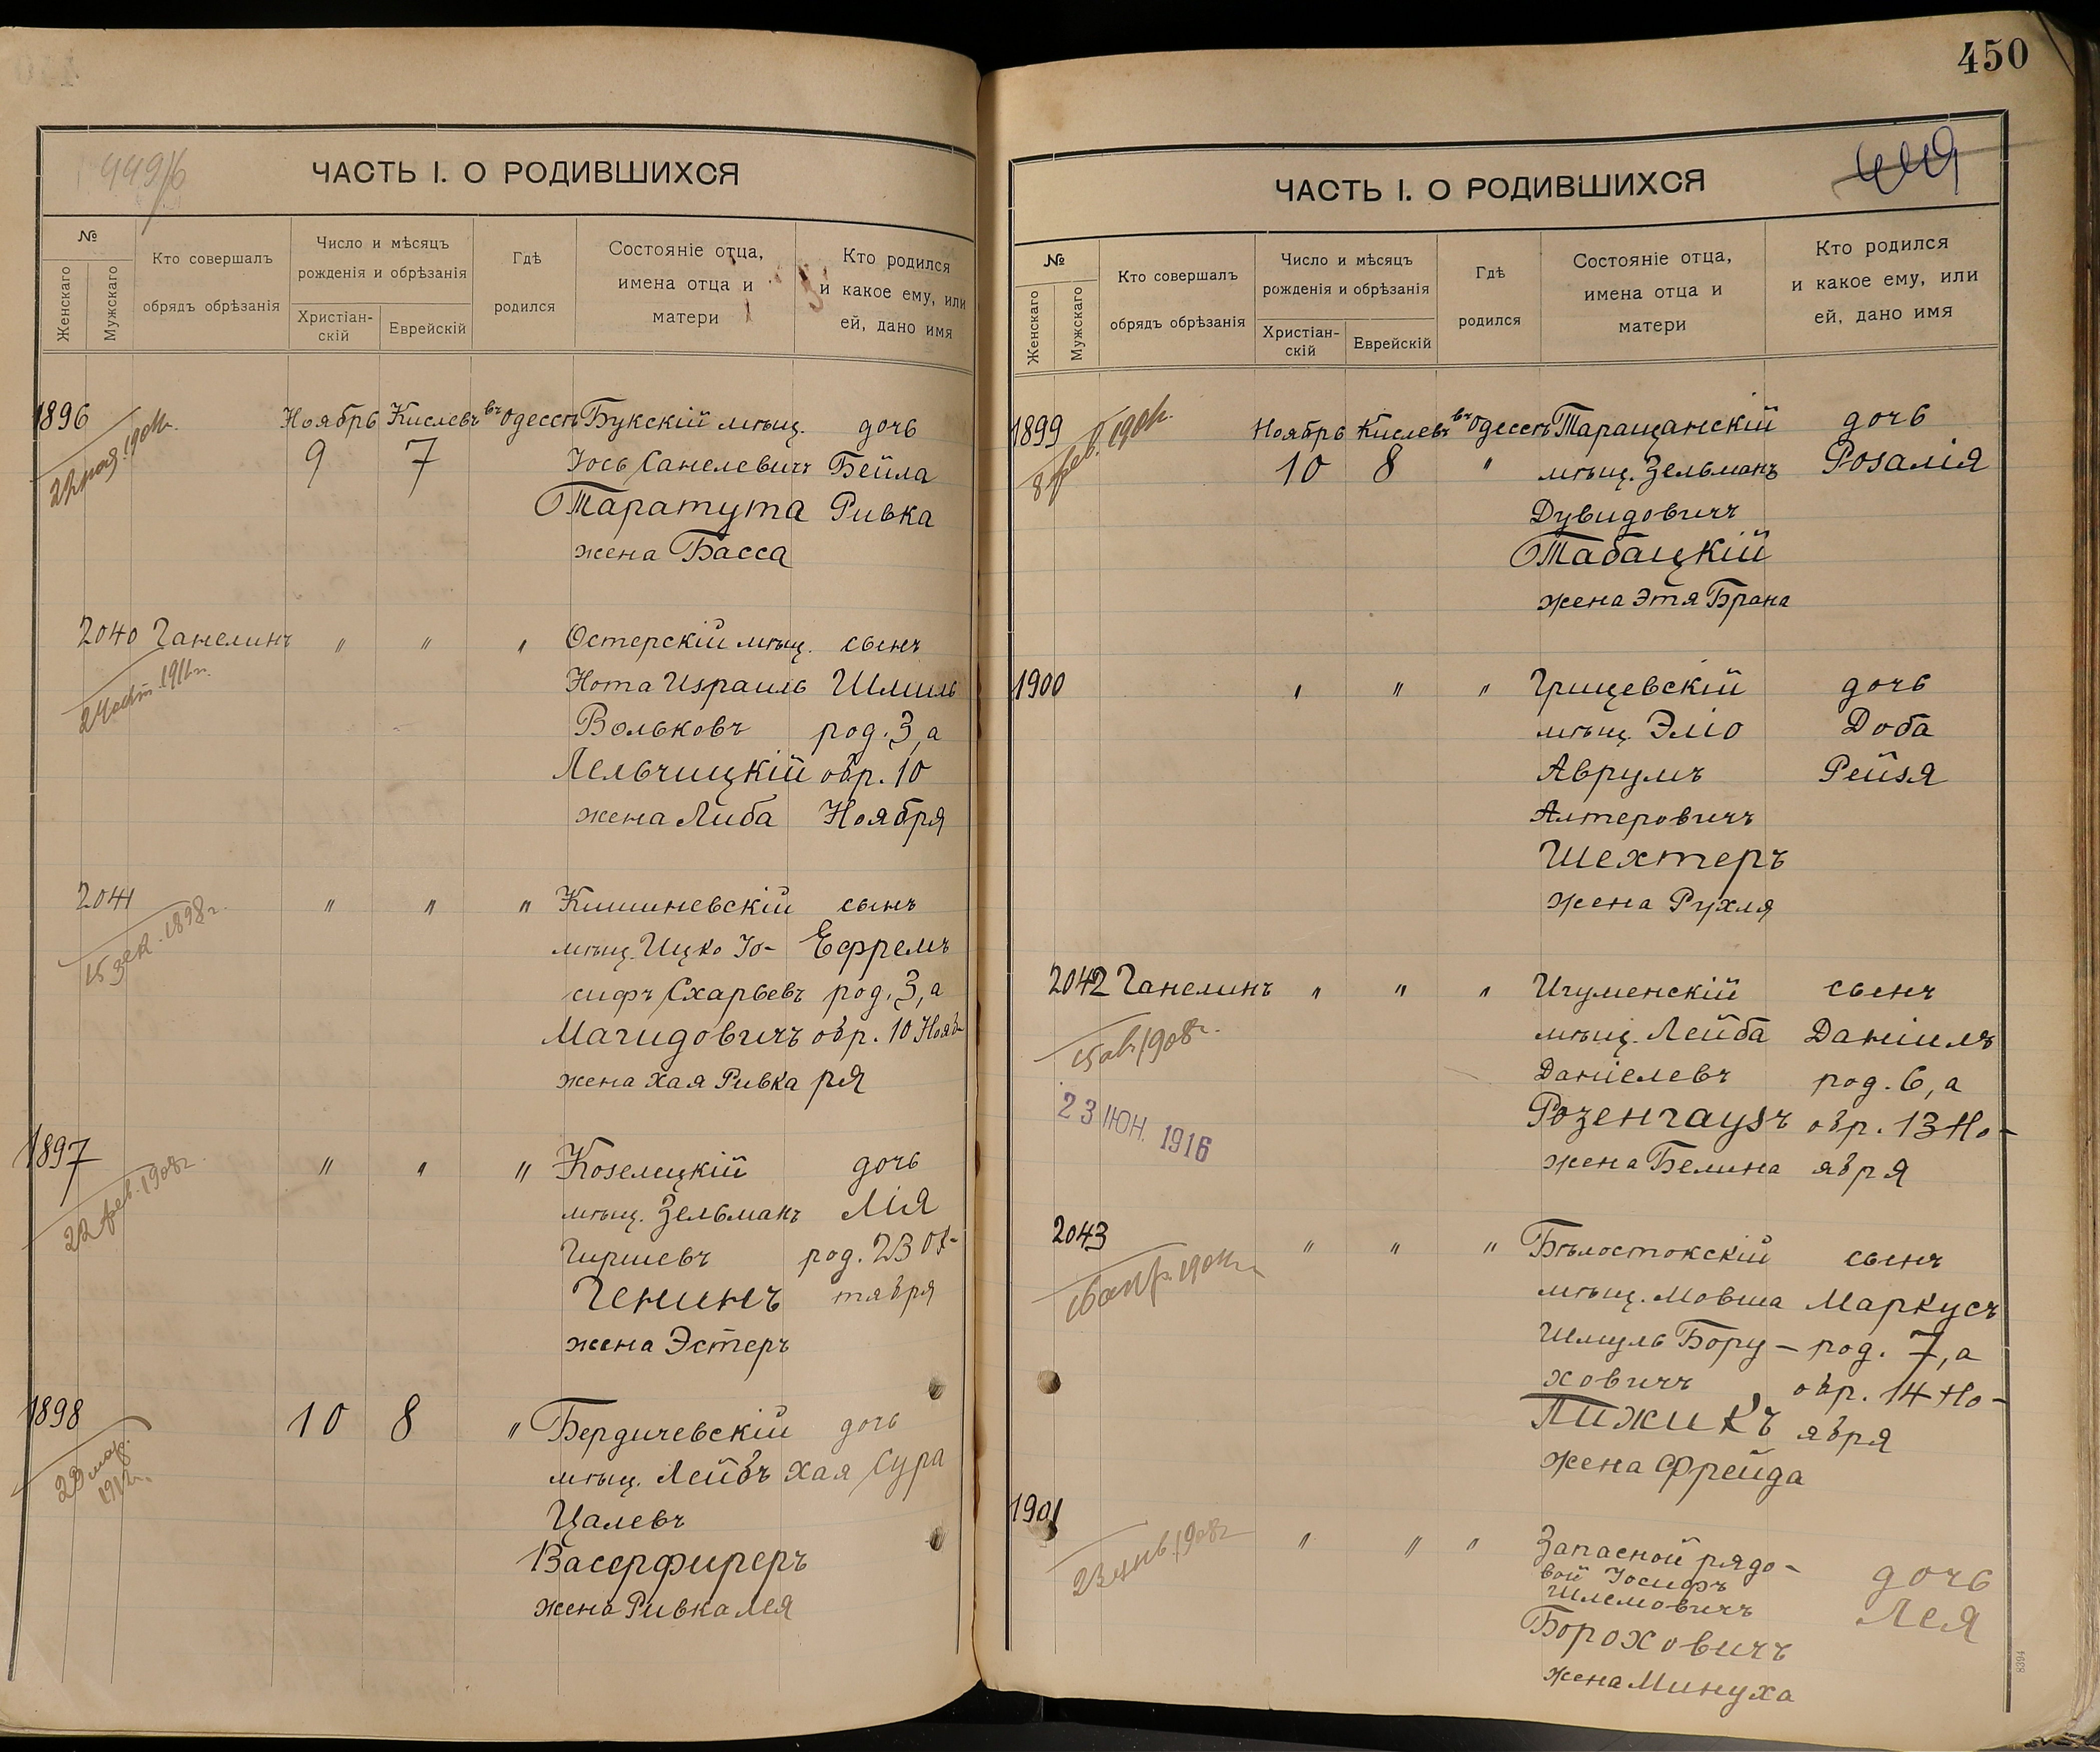 450
449/6
ЧАСТЬ I. О РОДИВШИХСЯ
№
Женскаго
Мужскаго
Кто совершалъ
обрядъ обрѣзанія
Число и мѣсяцъ
рожденія и обрѣзанія
Христіан-
скій
Еврейскій
Гдѣ
родился
Состояніе отца,
имена отца и
матери
Кто родился
и какое ему, или
ей, дано имя
1896 Ноябрь Кислевъ въ Одессѣ Букскій мѣщ. дочь
9 7 Іось Санелевичъ Бейла
Таратута Ривка
жена Басса
2040 Ганелинъ " " " Остерскій мѣщ. сынъ
Нота Израиль Шмиль
Вольковъ род. 3, а
Лельчицкій обр. 10
жена Либа Ноября
2041 " " " Кишиневскій сынъ
15 дек. 1898 г.
мѣщ. Ицко Іо- Ефремъ
сифъ Схарьевъ род. 3, а
Магидовичъ обр. 10 Нояб-
жена Хая Ривка ря
1897 " " " Козелецкій дочь
22 фев. 1908 г.
мѣщ. Зельманъ Лія
Гиршевъ род. 23 Ок-
Генинъ тября
жена Эстеръ
1898 10 8 " Бердичевскій дочь
23 мар.
1912 г.
мѣщ. Лейбъ Хая Сура
Цалевъ
Васерфиреръ
жена Ривка Лея
449
ЧАСТЬ I. О РОДИВШИХСЯ
№
Женскаго
Мужскаго
Кто совершалъ
обрядъ обрѣзанія
Число и мѣсяцъ
рожденія и обрѣзанія
Христіан-
скій
Еврейскій
Гдѣ
родился
Состояніе отца,
имена отца и
матери
Кто родился
и какое ему, или
ей, дано имя
1899 Ноябрь Кислевъ въ Одессѣ Таращанскій дочь
10 8 " мѣщ. Зельманъ Розалія
Дувидовичъ
Табацкій
жена Этя Брана
1900 " " " Грицевскій дочь
мѣщ. Эліо Доба
Аврумъ Рейзя
Алтеровичъ
Шехтеръ
жена Рухля
2042 Ганелинъ " " " Игуменскій сынъ
мѣщ. Лейба Даніилъ
Даніелевъ род. 6, а
Розенгаузъ обр. 13 Но-
23 ІЮН. 1916
жена Белина ября
2043 " " " Бѣлостокскій сынъ
мѣщ. Мовша Маркусъ
Шмуль Бору- род. 7, а
ховичъ обр. 14 Но-
Пижикъ ября
жена Фрейда
1901 " " " Запасной рядо- дочь
вой Іосифъ
Шлемовичъ Лея
Бороховичъ
жена Минуха
8394